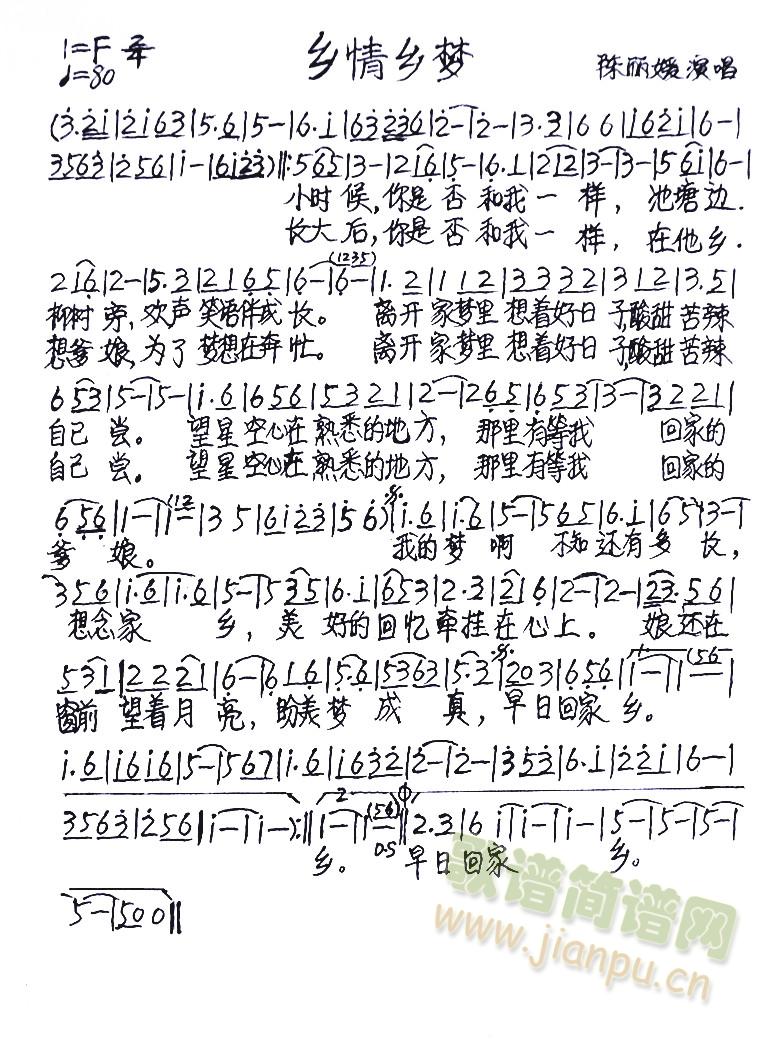 1=F 2/4 乡情乡梦 陈丽媛演唱
♩=80
(3.2i|2i63|5.6|5-|6.i|63236|2-|2-|3.3|66|i62i|6-|
3563|256|i-|6i23)‖:565|3-|2i6|5-|6.1|212|3-|3-|56i|6-|
小时候,你是否和我一样,池塘边.
长大后,你是否和我一样,在他乡.
2i6|2-|5.3|2165|6-|6-(1235)|1.2|112|3332|312|3.5|
柳树旁,欢声笑语伴成长。 离开家梦里想着好日子,酸甜苦辣
想爹娘,为了梦想在奔忙。 离开家梦里想着好日子,酸甜苦辣
653|5-|5-|i.6|656|5321|2-|265|653|3-|3221|
自己尝。 望星空心在熟悉的地方, 那里有等我 回家的
自己尝。 望星空心在熟悉的地方, 那里有等我 回家的
656|1-|1-(12|35|6i23|56)|i.6|i.6|5-|565|6.i|65|3-|
爹娘。 我的梦啊 不知还有多长,
356|i.6|i.6|5-|535|6.i|653|2.3|216|2-|2-|23.56|
想念家乡,美好的回忆牵挂在心上。 娘还在
531|2221|6-|616|5.6|5363|5.3|203|656|1-|1-(56|
窗前望着月亮,盼美梦成真,早日回家乡。
i.6|i6i6|5-|567|i.6|i632|2-|2-|353|6.i|22i|6-|
3563|256‖i-|i-):‖1-|1-(56)‖2.3|6i|i-|i-|5-|5-|5-|
2
乡。 D.S 早日回家 乡。
5-|500‖
歌谱简谱网
www.jianpu.cn